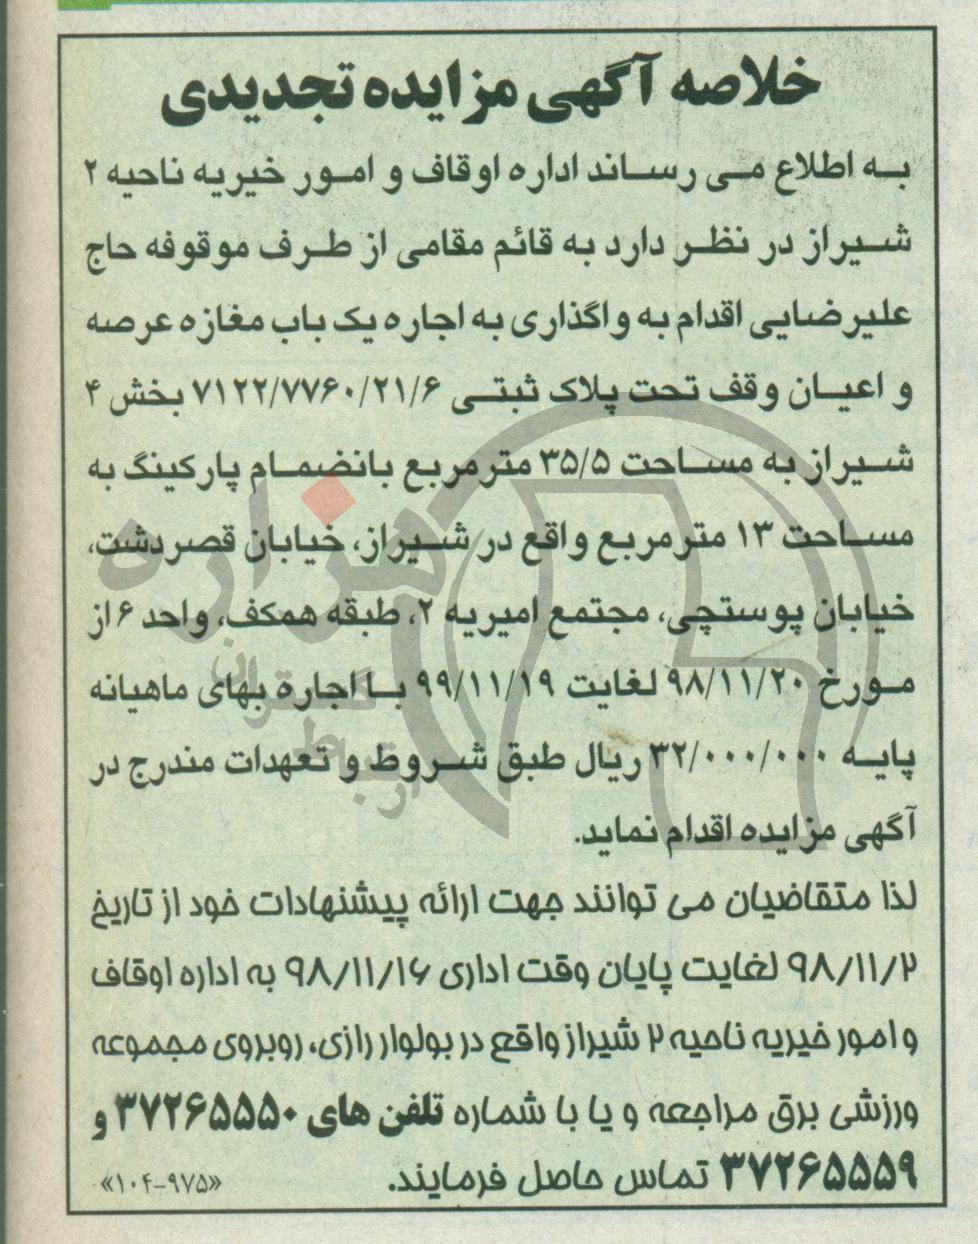 خلاصه آگهی مزایده تجدیدی
به اطلاع می رساند اداره اوقاف و امور خیریه ناحیه ۲
شیراز در نظر دارد به قائم مقامی از طرف موقوفه حاج
علیرضایی اقدام به واگذاری به اجاره یک باب مغازه عرصه
و اعیان وقف تحت پلاک ثبتی ۷۱۲۲/۷۷۶۰/۲۱/۶ بخش ۴
شیراز به مساحت ۳۵/۵ مترمربع بانضمام پارکینگ به
مساحت ۱۳ مترمربع واقع در شیراز، خیابان قصردشت،
خیابان پوستچی، مجتمع امیریه ۲، طبقه همکف، واحد ۶ از
مورخ ۹۸/۱۱/۲۰ لغایت ۹۹/۱۱/۱۹ با اجاره بهای ماهیانه
پایه ۳۲/۰۰۰/۰۰۰ ریال طبق شروط و تعهدات مندرج در
آگهی مزایده اقدام نماید.
لذا متقاضیان می توانند جهت ارائه پیشنهادات خود از تاریخ
۹۸/۱۱/۲ لغایت پایان وقت اداری ۹۸/۱۱/۱۶ به اداره اوقاف
و امور خیریه ناحیه ۲ شیراز واقع در بولوار رازی، روبروی مجموعه
ورزشی برق مراجعه و یا با شماره تلفن های ۳۷۲۶۵۵۵۰ و
۳۷۲۶۵۵۵۹ تماس حاصل فرمایند.
«۱۰۴-۹۷۵»